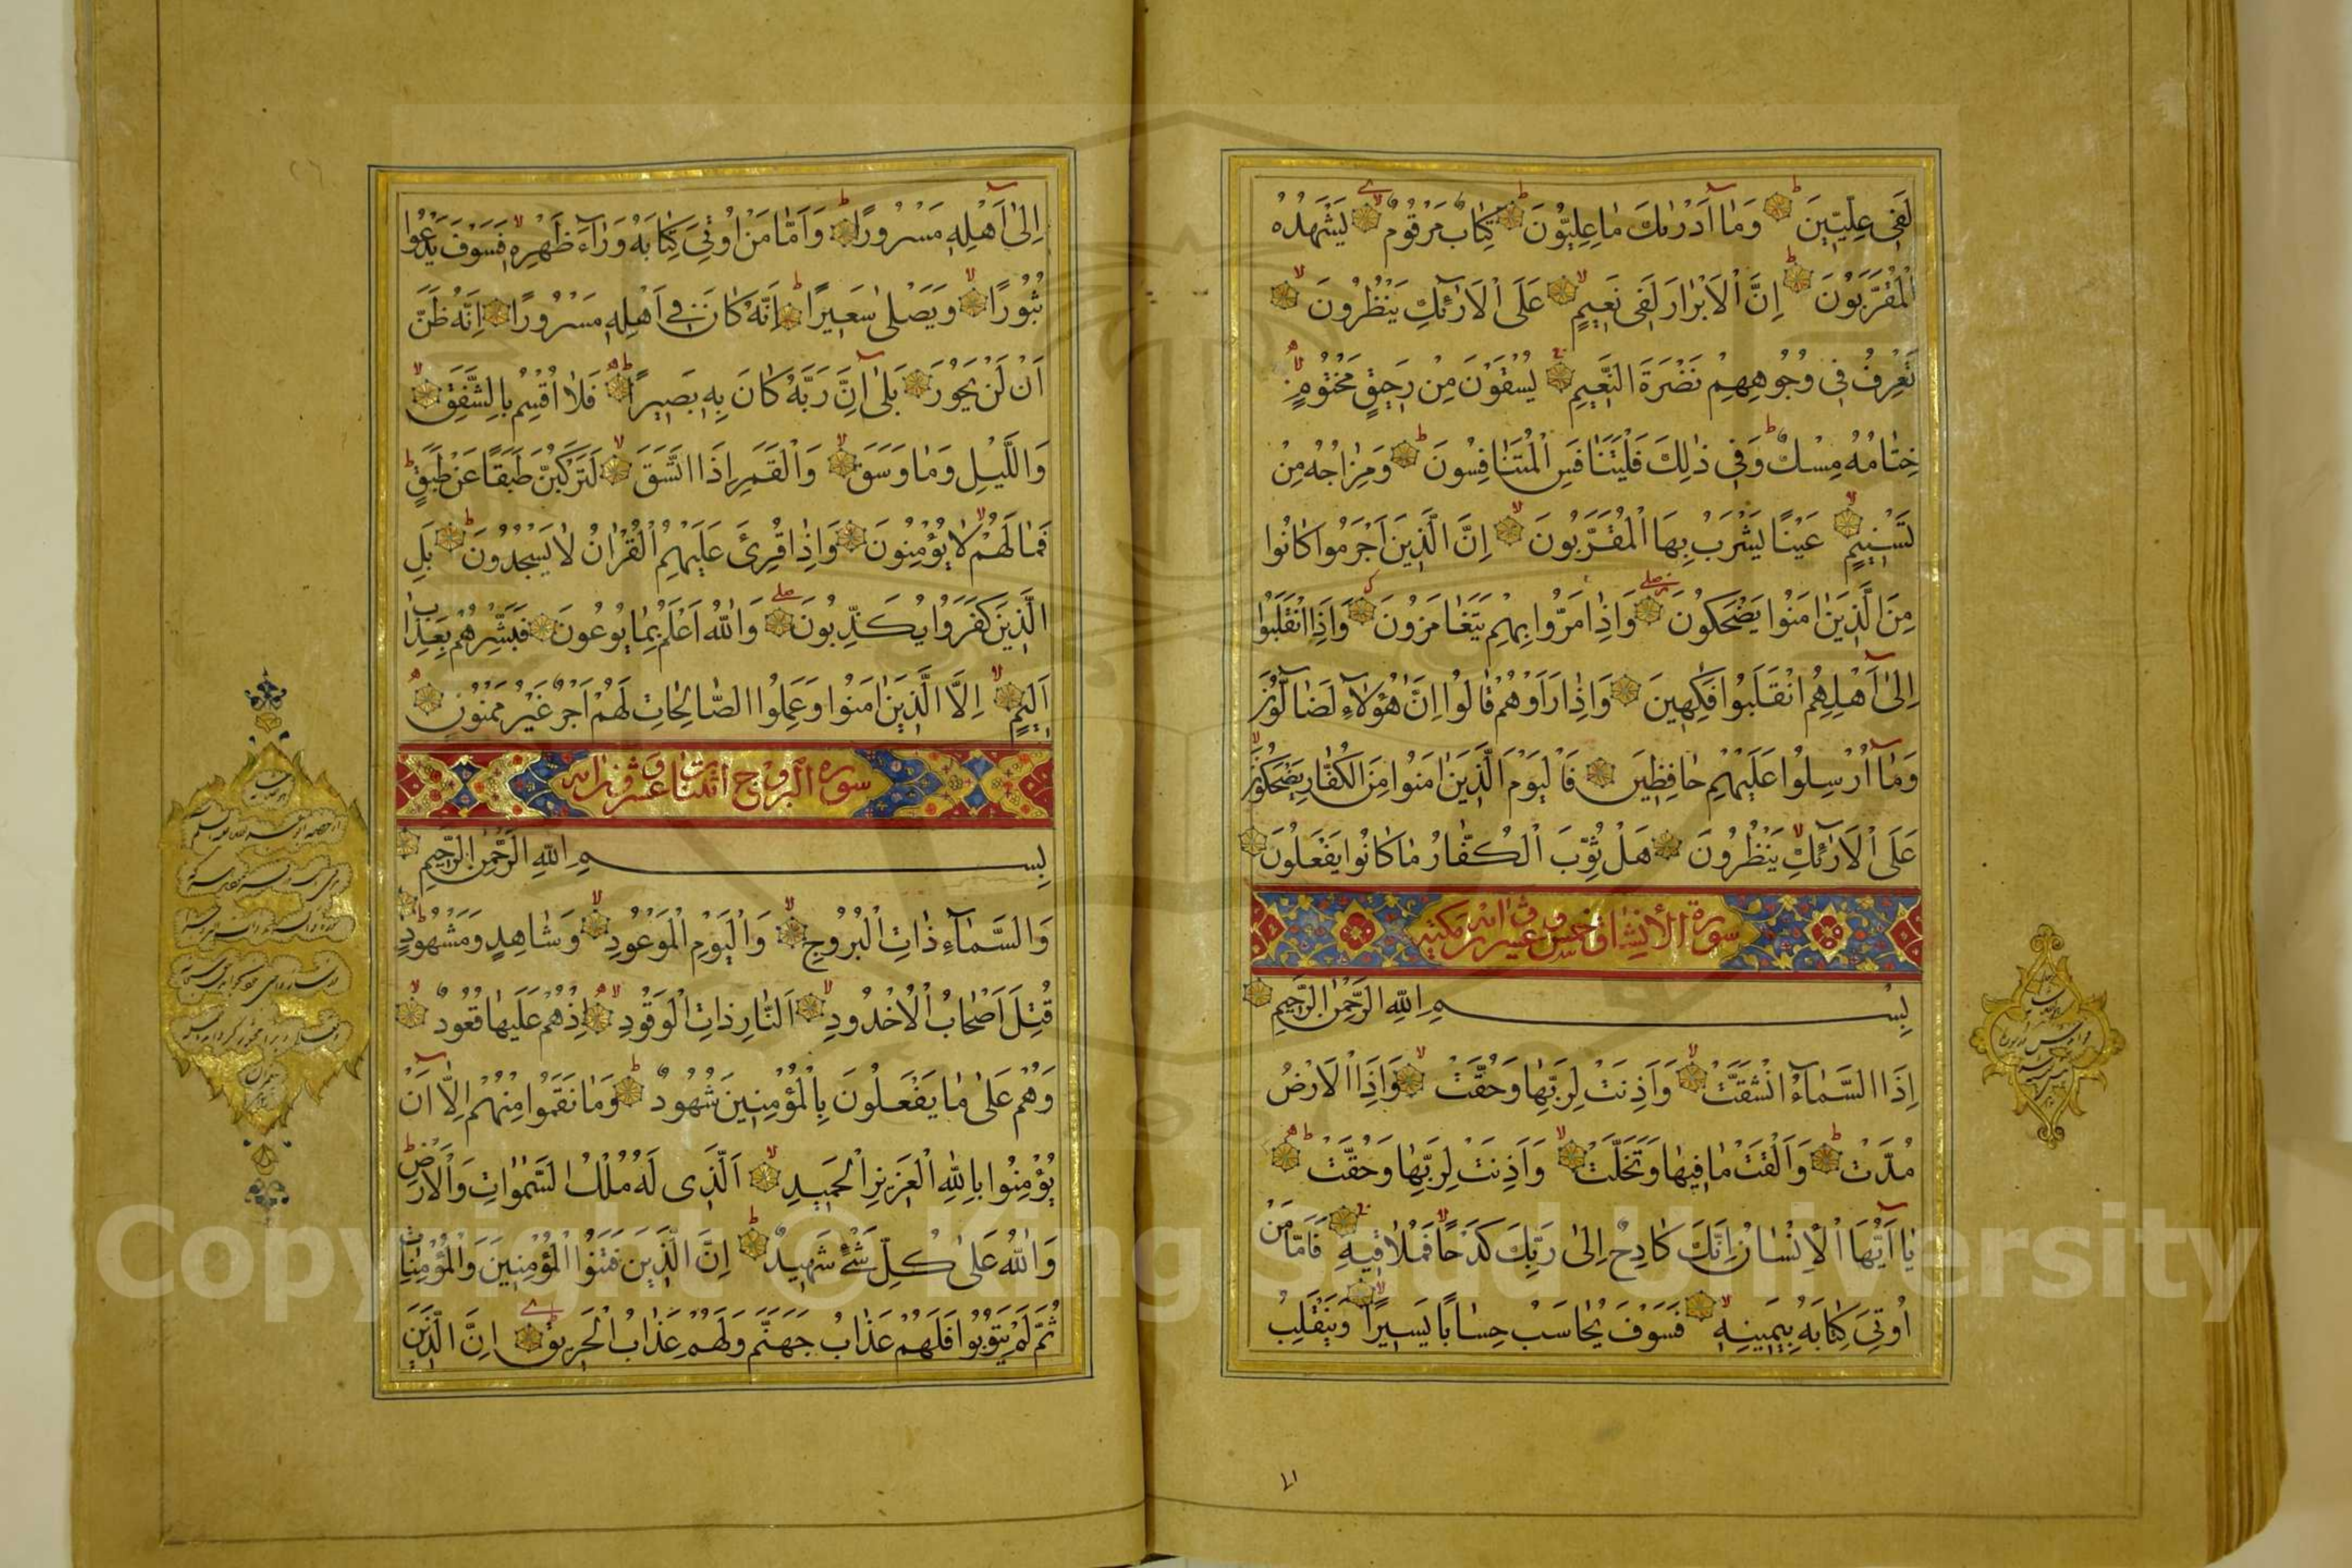 لَفِي عِلِّيِّينَ وَمَا أَدْرٰىكَ مَا عِلِّيُّونَ كِتَابٌ مَرْقُومٌ يَشْهَدُهُ
الْمُقَرَّبُونَ إِنَّ الْأَبْرَارَ لَفِي نَعِيمٍ عَلَى الْأَرَآئِكِ يَنْظُرُونَ
تَعْرِفُ فِي وُجُوهِهِمْ نَضْرَةَ النَّعِيمِ يُسْقَوْنَ مِنْ رَحِيقٍ مَخْتُومٍ
خِتَامُهُ مِسْكٌ وَفِي ذٰلِكَ فَلْيَتَنَافَسِ الْمُتَنَافِسُونَ وَمِزَاجُهُ مِنْ
تَسْنِيمٍ عَيْنًا يَشْرَبُ بِهَا الْمُقَرَّبُونَ إِنَّ الَّذِينَ أَجْرَمُوا كَانُوا
مِنَ الَّذِينَ اٰمَنُوا يَضْحَكُونَ وَإِذَا مَرُّوا بِهِمْ يَتَغَامَزُونَ وَإِذَا انْقَلَبُوا
إِلٰىٓ أَهْلِهِمُ انْقَلَبُوا فَكِهِينَ وَإِذَا رَأَوْهُمْ قَالُوا إِنَّ هٰٓؤُلَآءِ لَضَآلُّونَ
وَمَآ أُرْسِلُوا عَلَيْهِمْ حَافِظِينَ فَالْيَوْمَ الَّذِينَ اٰمَنُوا مِنَ الْكُفَّارِ يَضْحَكُونَ
عَلَى الْأَرَآئِكِ يَنْظُرُونَ هَلْ ثُوِّبَ الْكُفَّارُ مَا كَانُوا يَفْعَلُونَ
سورة الانشقاق خمس وعشرون اية مكية
بِسْمِ اللّٰهِ الرَّحْمٰنِ الرَّحِيمِ
إِذَا السَّمَآءُ انْشَقَّتْ وَأَذِنَتْ لِرَبِّهَا وَحُقَّتْ وَإِذَا الْأَرْضُ
مُدَّتْ وَأَلْقَتْ مَا فِيهَا وَتَخَلَّتْ وَأَذِنَتْ لِرَبِّهَا وَحُقَّتْ
يَآ أَيُّهَا الْإِنْسَانُ إِنَّكَ كَادِحٌ إِلٰى رَبِّكَ كَدْحًا فَمُلَاقِيهِ فَأَمَّا مَنْ
أُوتِيَ كِتَابَهُ بِيَمِينِهِ فَسَوْفَ يُحَاسَبُ حِسَابًا يَسِيرًا وَيَنْقَلِبُ
إِلٰىٓ أَهْلِهِ مَسْرُورًا وَأَمَّا مَنْ أُوتِيَ كِتَابَهُ وَرَآءَ ظَهْرِهِ فَسَوْفَ يَدْعُوا
ثُبُورًا وَيَصْلٰى سَعِيرًا إِنَّهُ كَانَ فِي أَهْلِهِ مَسْرُورًا إِنَّهُ ظَنَّ
أَنْ لَنْ يَحُورَ بَلٰىٓ إِنَّ رَبَّهُ كَانَ بِهِ بَصِيرًا فَلَا أُقْسِمُ بِالشَّفَقِ
وَاللَّيْلِ وَمَا وَسَقَ وَالْقَمَرِ إِذَا اتَّسَقَ لَتَرْكَبُنَّ طَبَقًا عَنْ طَبَقٍ
فَمَا لَهُمْ لَا يُؤْمِنُونَ وَإِذَا قُرِئَ عَلَيْهِمُ الْقُرْاٰنُ لَا يَسْجُدُونَ بَلِ
الَّذِينَ كَفَرُوا يُكَذِّبُونَ وَاللّٰهُ أَعْلَمُ بِمَا يُوعُونَ فَبَشِّرْهُمْ بِعَذَابٍ
أَلِيمٍ إِلَّا الَّذِينَ اٰمَنُوا وَعَمِلُوا الصَّالِحَاتِ لَهُمْ أَجْرٌ غَيْرُ مَمْنُونٍ
سورة البروج اثنتا وعشرون اية
بِسْمِ اللّٰهِ الرَّحْمٰنِ الرَّحِيمِ
وَالسَّمَآءِ ذَاتِ الْبُرُوجِ وَالْيَوْمِ الْمَوْعُودِ وَشَاهِدٍ وَمَشْهُودٍ
قُتِلَ أَصْحَابُ الْأُخْدُودِ اَلنَّارِ ذَاتِ الْوَقُودِ إِذْ هُمْ عَلَيْهَا قُعُودٌ
وَهُمْ عَلٰى مَا يَفْعَلُونَ بِالْمُؤْمِنِينَ شُهُودٌ وَمَا نَقَمُوا مِنْهُمْ إِلَّآ أَنْ
يُؤْمِنُوا بِاللّٰهِ الْعَزِيزِ الْحَمِيدِ اَلَّذِي لَهُ مُلْكُ السَّمٰوَاتِ وَالْأَرْضِ
وَاللّٰهُ عَلٰى كُلِّ شَيْءٍ شَهِيدٌ إِنَّ الَّذِينَ فَتَنُوا الْمُؤْمِنِينَ وَالْمُؤْمِنَاتِ
ثُمَّ لَمْ يَتُوبُوا فَلَهُمْ عَذَابُ جَهَنَّمَ وَلَهُمْ عَذَابُ الْحَرِيقِ إِنَّ الَّذِينَ
Copyright © King Saud University